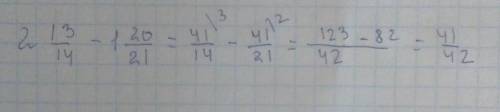 2 13/14 - 1 20/21 = 41/14 \3 - 41/21 \2 = 123 - 82/42 = 41/42